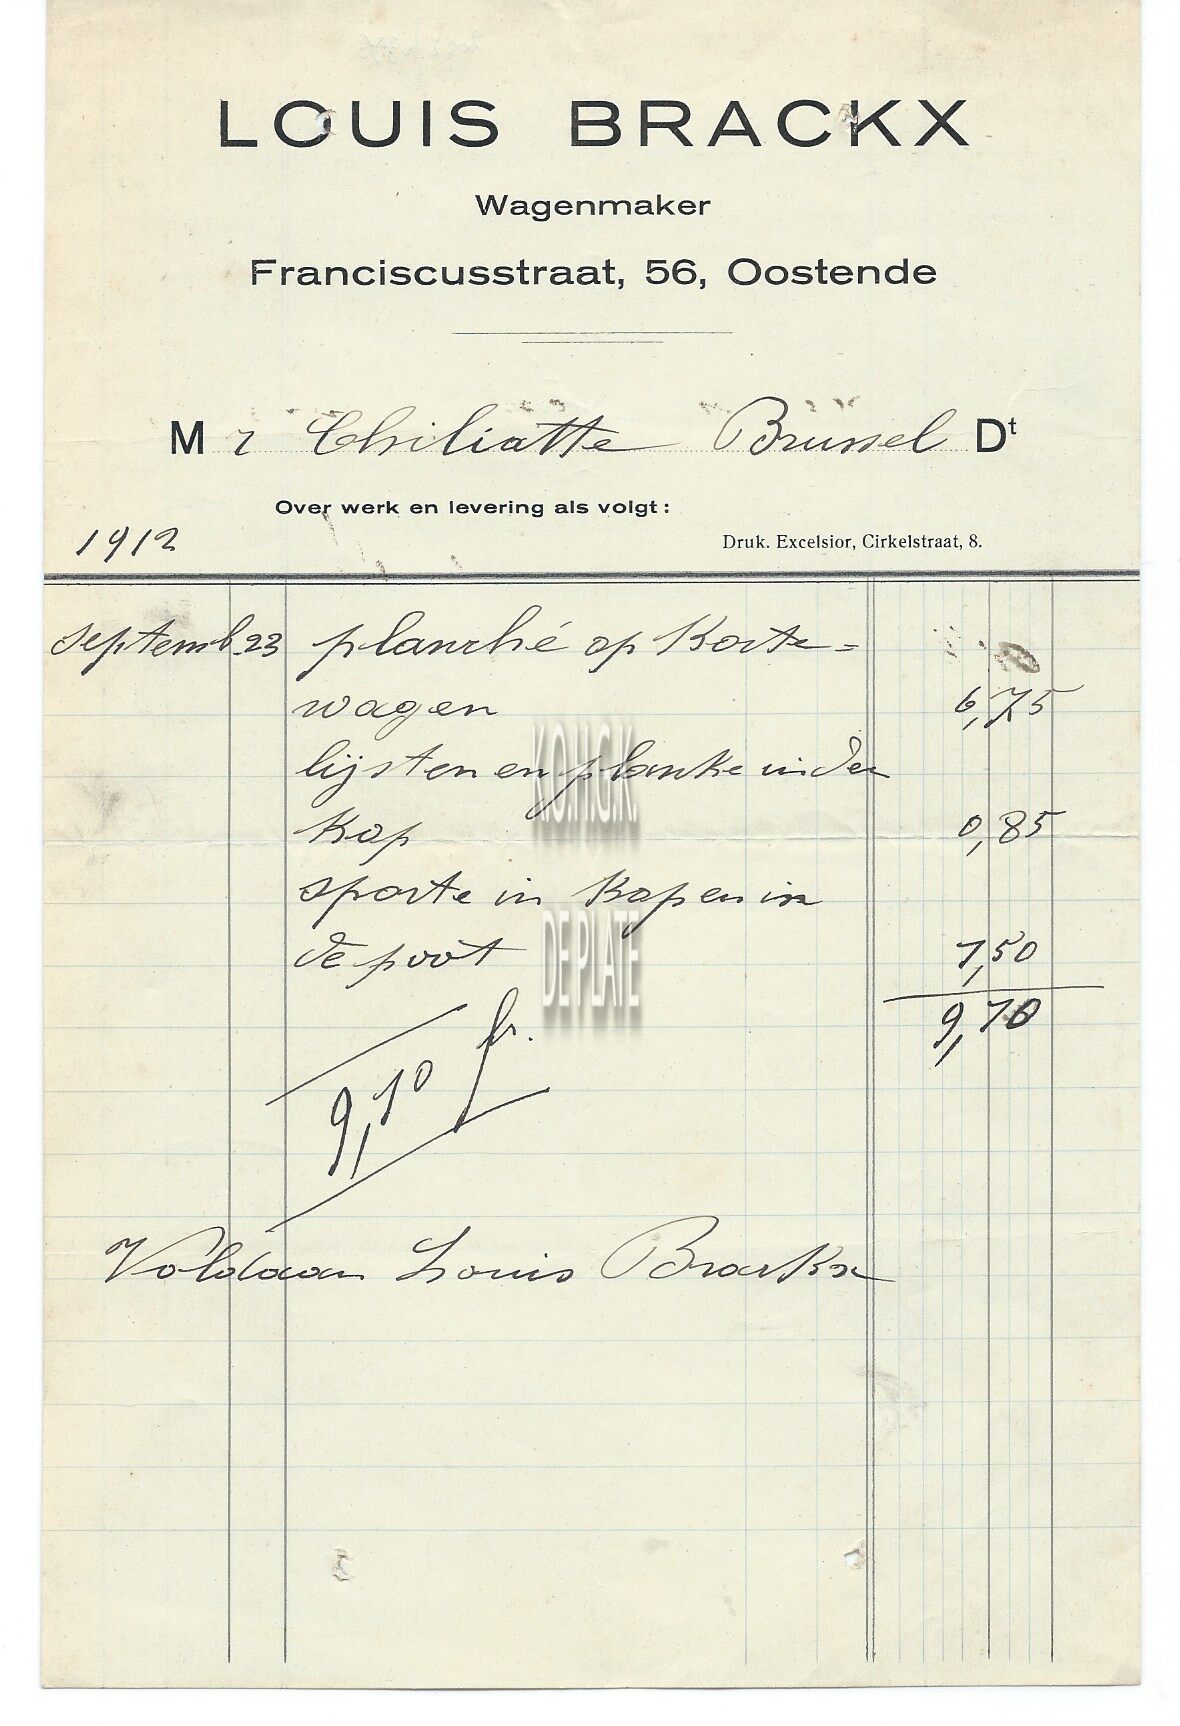 LOUIS BRACKX
Wagenmaker
Franciscusstraat, 56, Oostende
Mr Chiliatte Brussel Dt
Over werk en levering als volgt:
1912
Druk. Excelsior, Cirkelstraat, 8.
Septemb. 23 planché op Korte=
wagen 6,75
lijsten en planke in den
Kop 0,85
sporte in Kop en in
de poot 1,50
9,10
9,10 fr.
Voldaan Louis Brackx
K.O.H.G.K.
DE PLATE